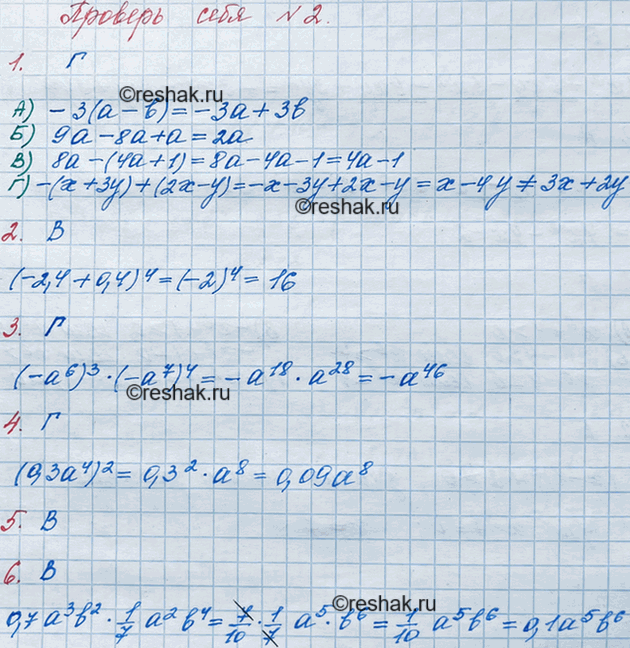 Проверь себя №2.
1. Г
©reshak.ru
А) -3(a-b)=-3a+3b
Б) 9a-8a+a=2a
В) 8a-(4a+1)=8a-4a-1=4a-1
Г) -(x+3y)+(2x-y)=-x-3y+2x-y=x-4y≠3x+2y
©reshak.ru
2. В
(-2,4+0,4)^4=(-2)^4=16
3. Г
(-a^6)^3·(-a^7)^4=-a^18·a^28=-a^46
©reshak.ru
4. Г
(0,3a^4)^2=0,3^2·a^8=0,09a^8
5. В
6. В
0,7a^3b^2·1/7 a^2b^4=7/10·1/7 a^5·b^6=1/10 a^5b^6=0,1a^5b^6